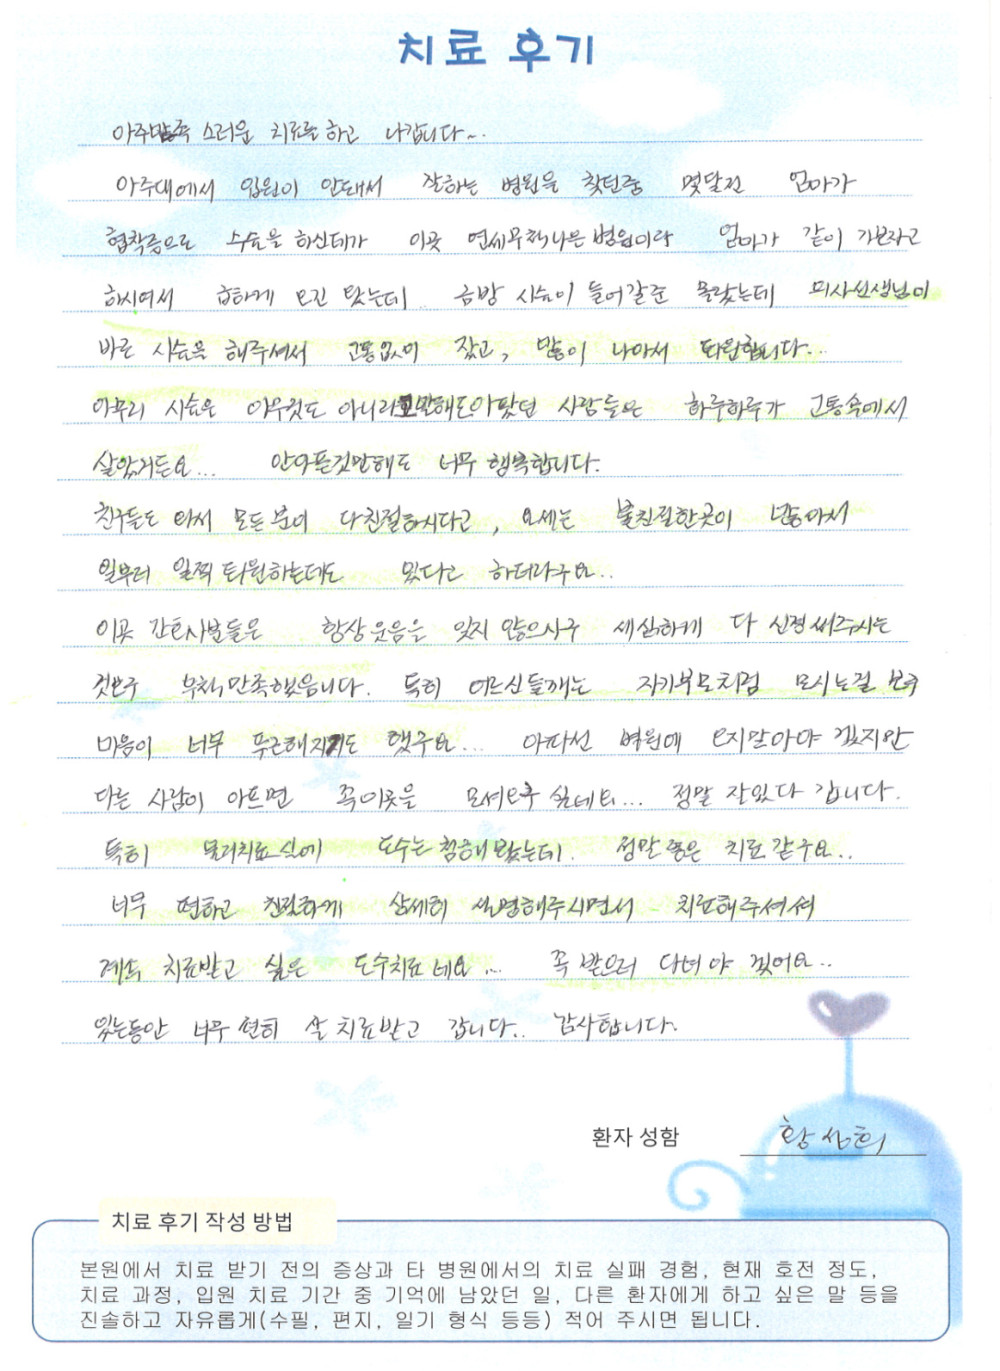 치료 후기
아주만족 스러운 치료를 하고 나갑니다~.
아주대에서 입원이 안돼서 잘하는 병원을 찾던중 몇달전 엄마가
협착증으로 수술을 하신데가 이곳 연세무척나은병원이라 엄마가 같이 가보자고
하시여서 급하게 오긴 왔는데.. 금방 시술이 들어갈줄 몰랐는데 의사선생님이
바로 시술을 해주셔서 고통없이 잤고, 많이 나아서 퇴원합니다...
아무리 시술은 아무것도 아니라고말해도아팠던 사람들은 하루하루가 고통속에서
살았거든요... 안아픈것만해도 너무 행복합니다.
친구들도 와서 모든 분이 다친절하시다고, 요세는 불친절한곳이 너무많아서
일부러 일찍 퇴원하는데도 있다고 하더라구요..
이곳 간호사분들은 항상웃음을 잊지 않으시구 세심하게 다 신경써주시는
것보구 무척만족했읍니다. 특히 어르신들께는 자기부모처럼 모시는걸 보구
마음이 너무 푸근해지기도 했구요... 아파선 병원에 오지말아야 겠지만
다른 사람이 아프면 꼭이곳을 모셔오구 싶네요... 정말 잘있다 갑니다.
특히 물리치료실에 도수는 첨해봤는데. 정말 좋은 치료같구요..
너무 편하고 친절하게 상세히 설명해주시면서 치료해주셔서
계속 치료받고 싶은 도수치료네요... 꼭 받으러 다녀야 겠어요..
있는동안 너무 편히 잘 치료받고 갑니다.. 감사합니다.
환자 성함 황상희
치료 후기 작성 방법
본원에서 치료 받기 전의 증상과 타 병원에서의 치료 실패 경험, 현재 호전 정도,
치료 과정, 입원 치료 기간 중 기억에 남았던 일, 다른 환자에게 하고 싶은 말 등을
진솔하고 자유롭게(수필, 편지, 일기 형식 등등) 적어 주시면 됩니다.